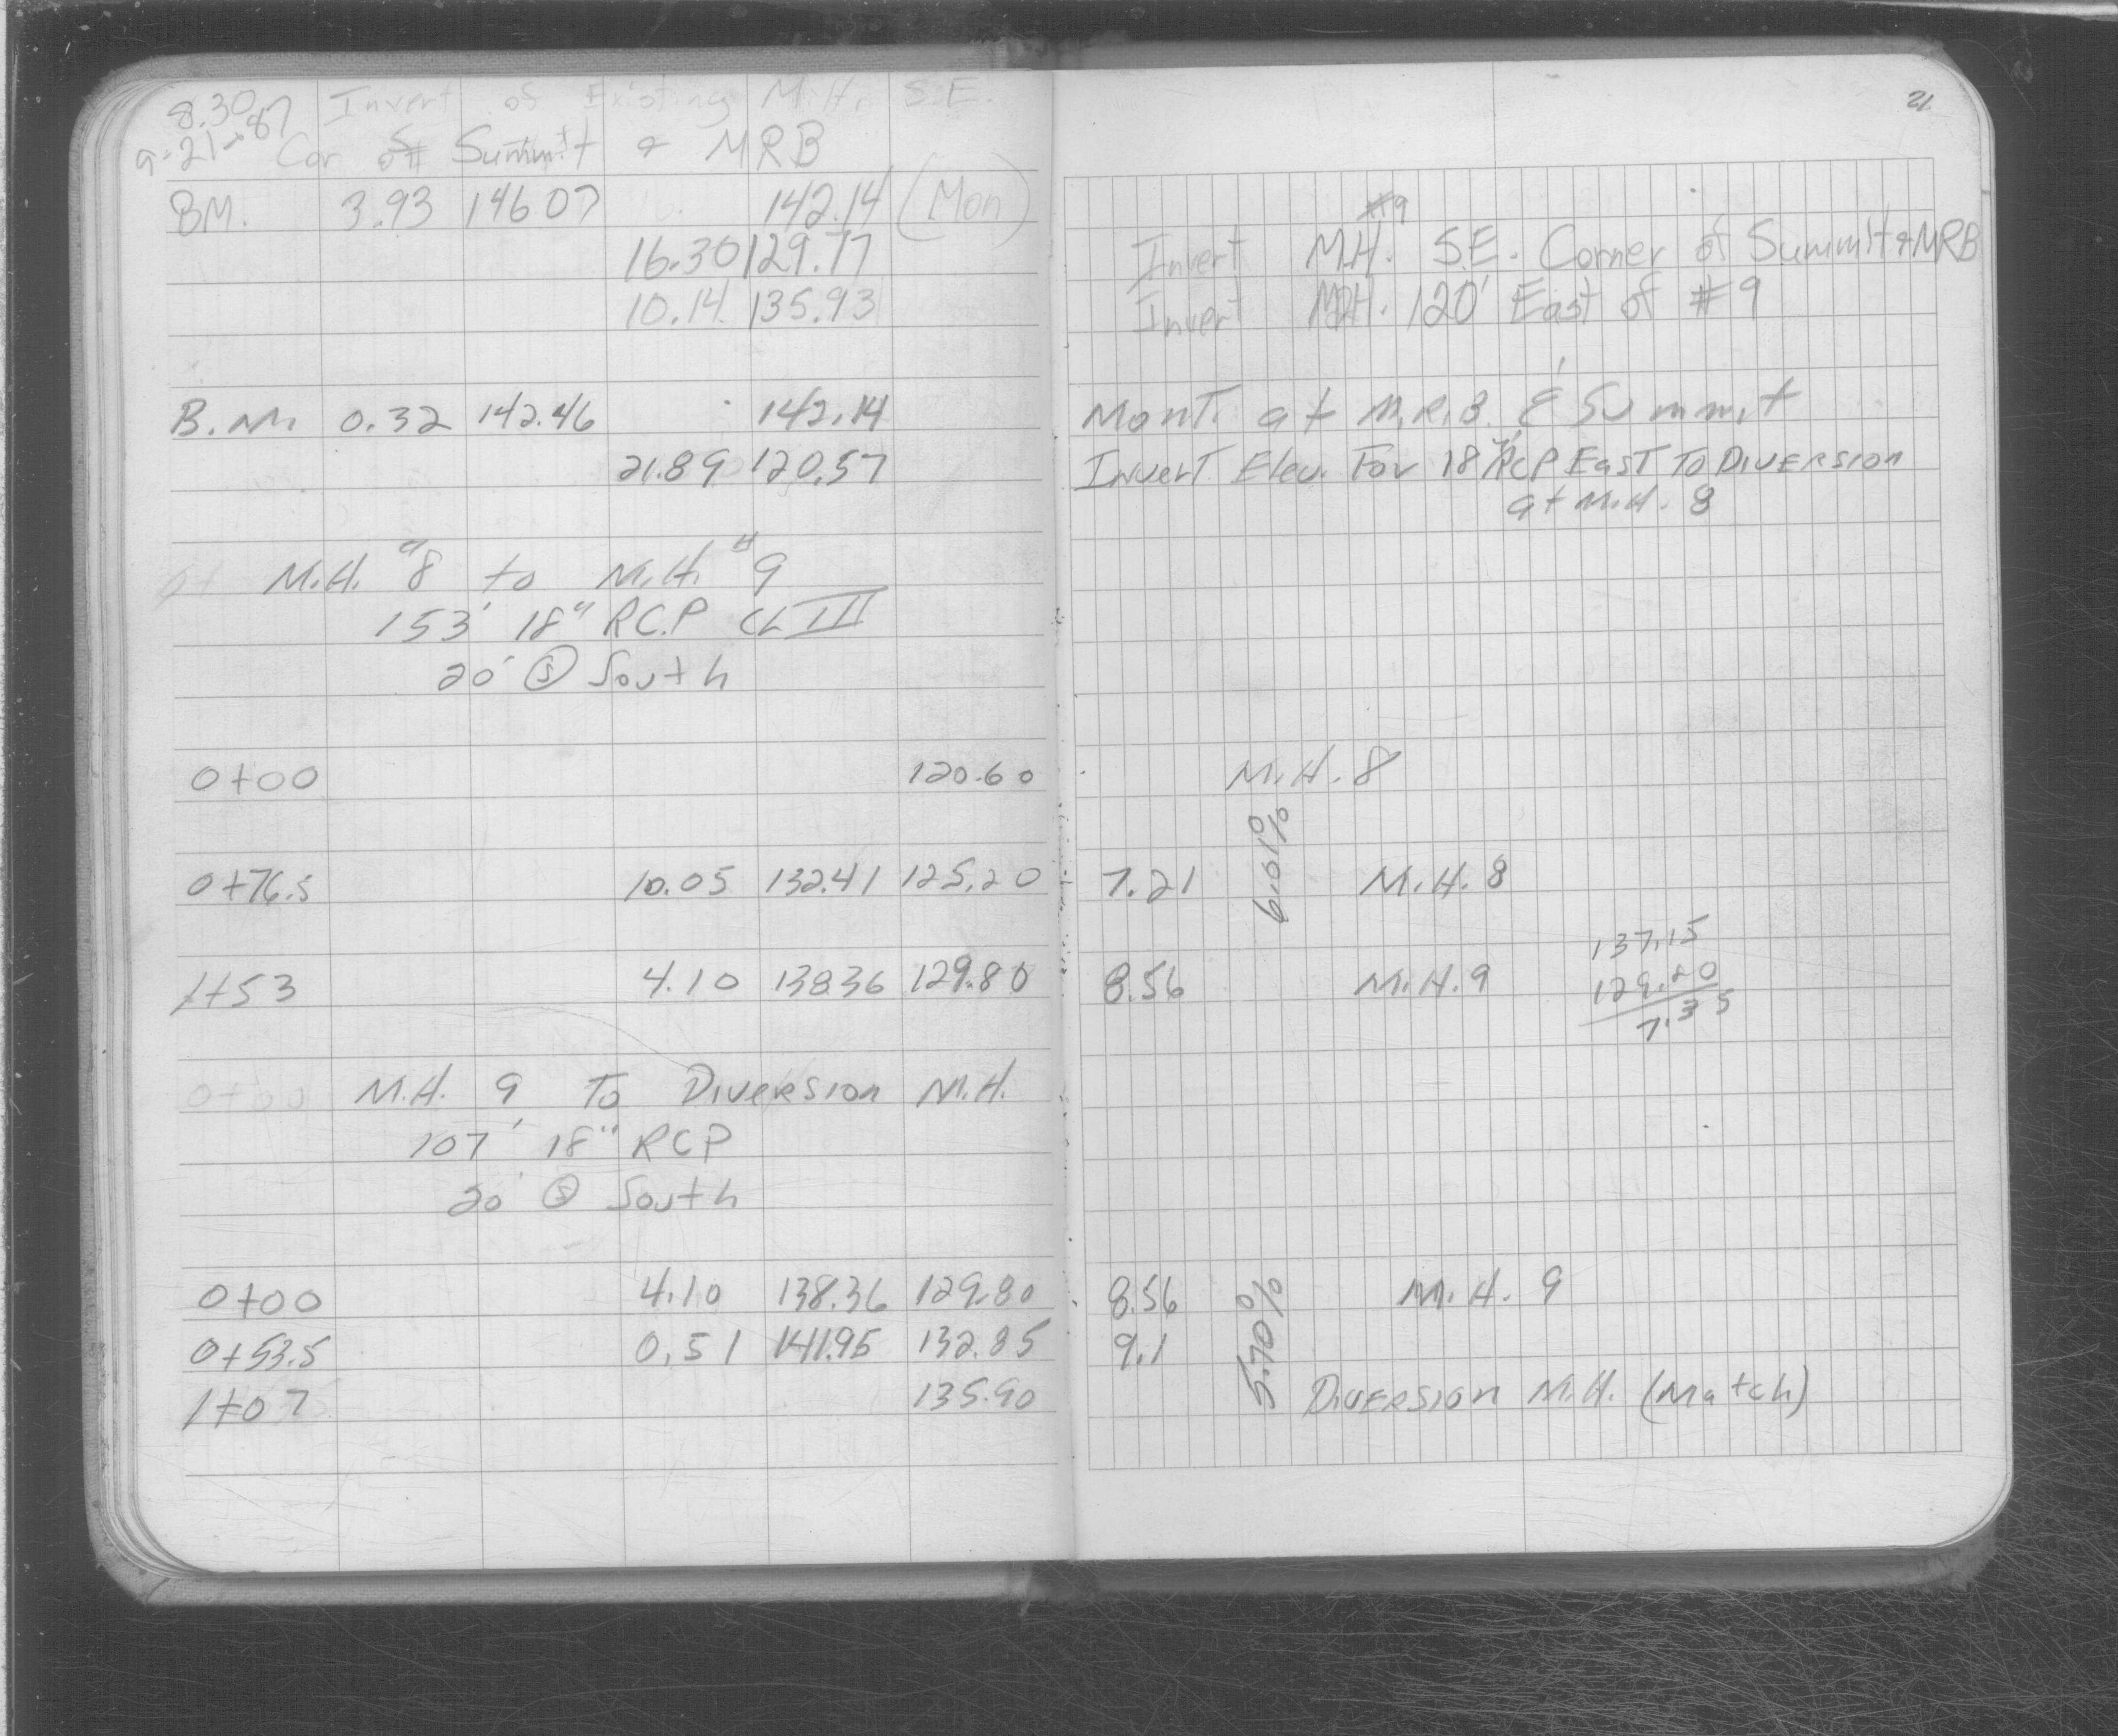 8.30
9-21-87
Invert of Existing M.H. S.E.
Cor of Summit & MRB
BM. 3.93 146.07 142.14 (Mon)
16.30 129.77
10.14 135.93
B.M. 0.32 142.46 142.14
21.89 120.57
M.H. #8 to M.H. #9
153' 18" RCP CL III
20' Ⓢ South
0+00 120.60
0+76.5 10.05 132.41 125.20
1+53 4.10 138.36 129.80
0+00 M.H. 9 To Diversion M.H.
107' 18" RCP
20' Ⓢ South
0+00 4.10 138.36 129.80
0+53.5 0.51 141.95 132.85
1+07 135.90
21
#9
Invert M.H. S.E. Corner of Summit & MRB
Invert M.H. 120' East of #9
Mont. at M.R.B. & Summit
Invert Elev. For 18" RCP East To Diversion
at M.H. 8
M.H. 8
6.01%
7.21 M.H. 8
8.56 M.H. 9
137.15
129.80
7.35
8.56 M.H. 9
9.1
5.70%
Diversion M.H. (Match)